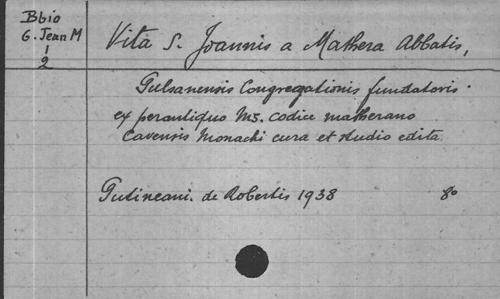 Bbio
G. Jean M
1
2
Vita S. Joannis a Mathera Abbatis,
Pulsanensis Congregationis fundatoris.
ex perantiquo Ms. codice matherano
Cavensis Monachi cura et studio edita.
Putineani. de Robertis 1938 8°